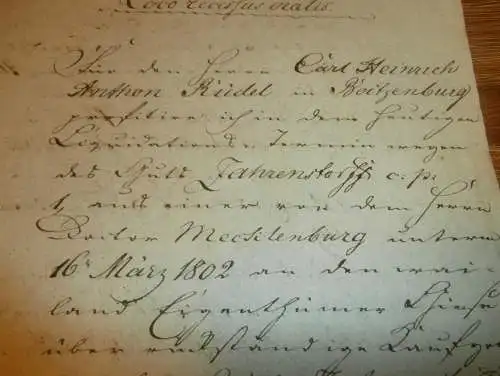 Loco recessus oralis.
Für den Herrn Carl Heinrich
Anthon Rüdel in Boitzenburg
profitire ich in dem heutigen
Liquidations-Termin wegen
des Guts Jahrenstorff c. p.
1, aus einer von dem Herrn
Doctor Mecklenburg unterm
16t März 1802 an den wai-
land Eigenthümer
über rückständige Kaufgel